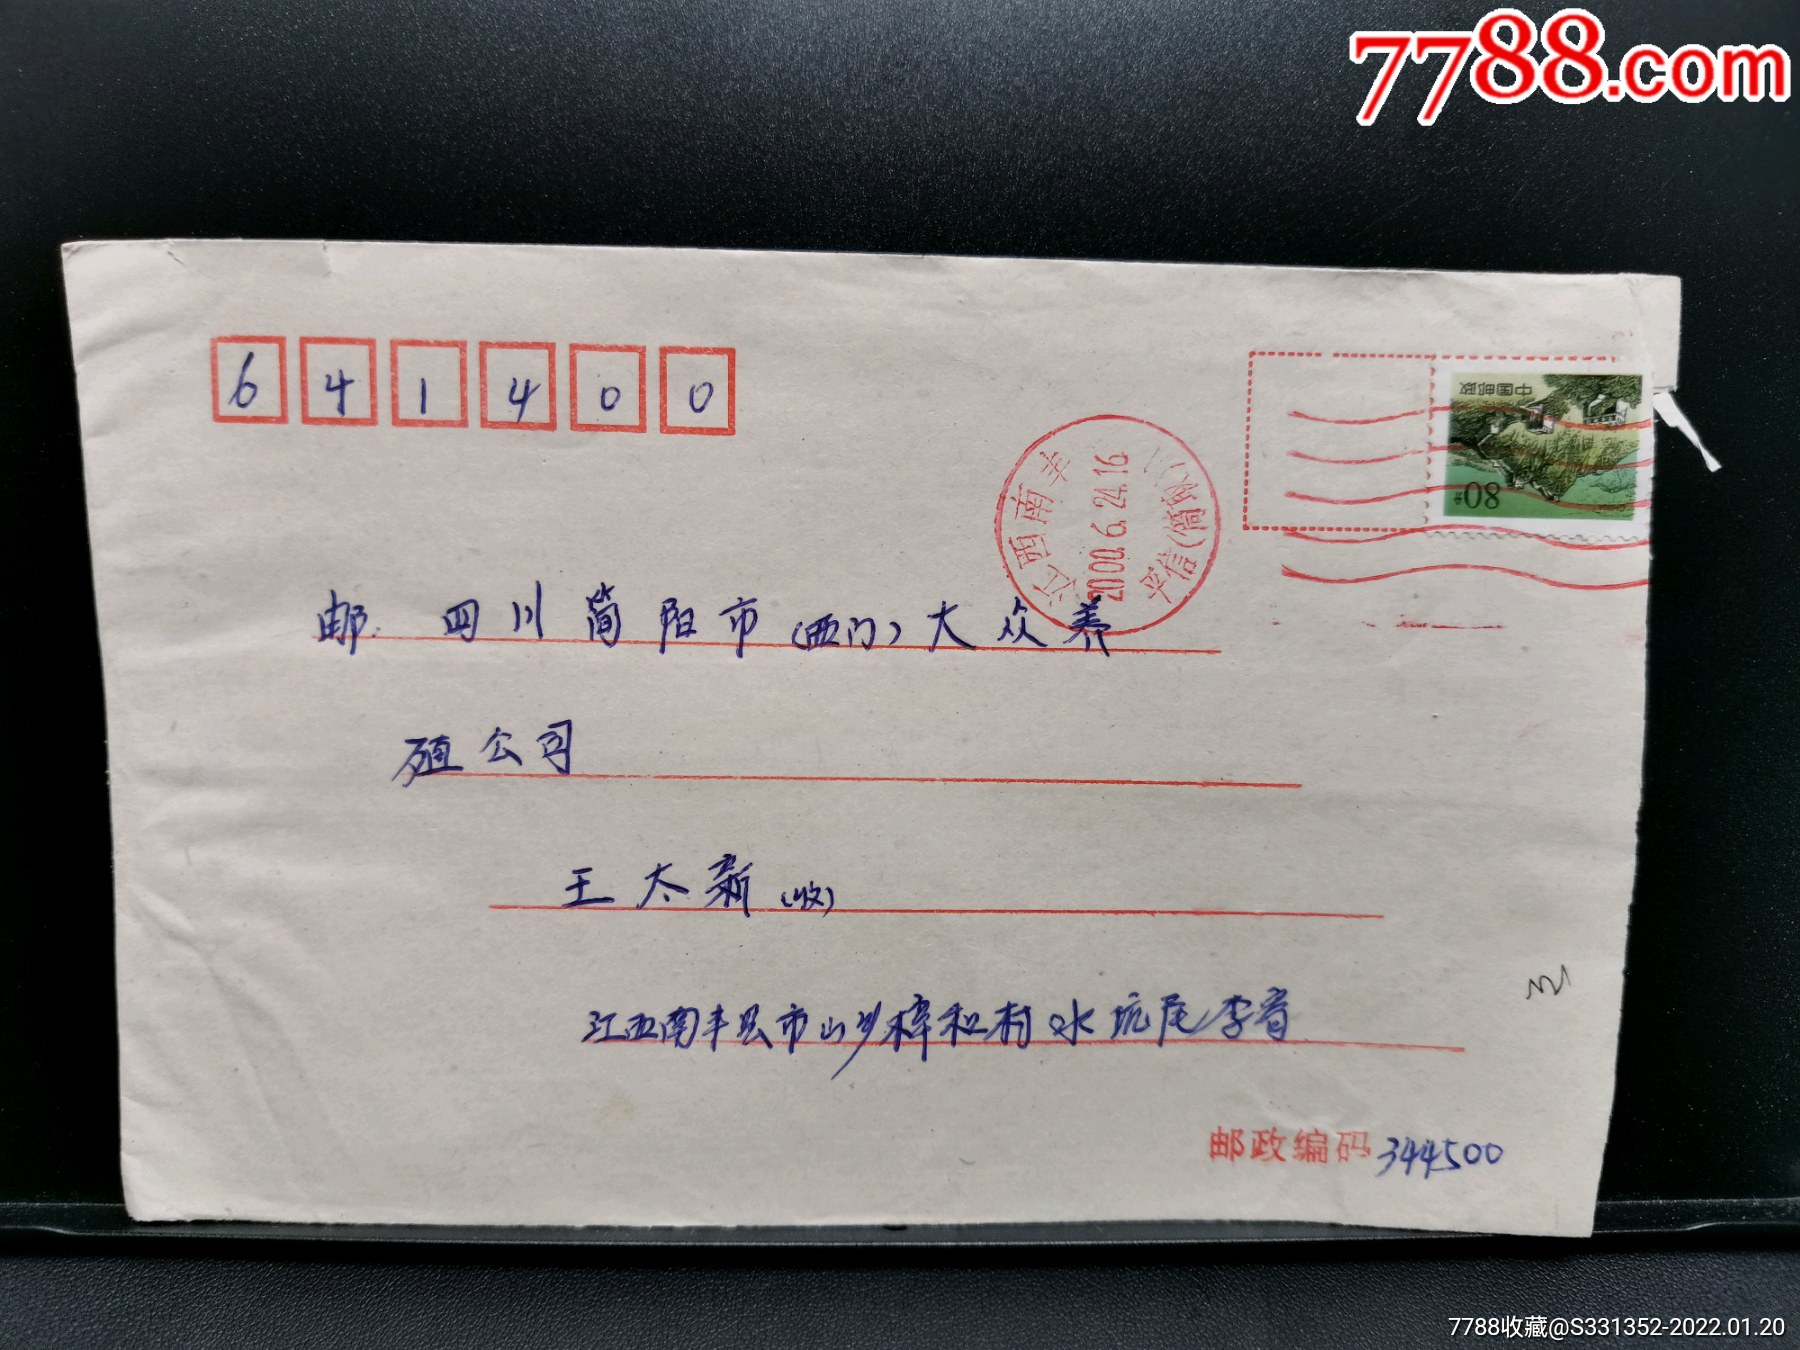 7788.com
641400
中国邮政
80分
江西南丰
2000.6.24.16
平信(筒取)
邮. 四川简阳市(西门)大众养
殖公司
王太新(收)
江西南丰县市山乡梓和村水坑尾李育
邮政编码344500
7788收藏@S331352-2022.01.20